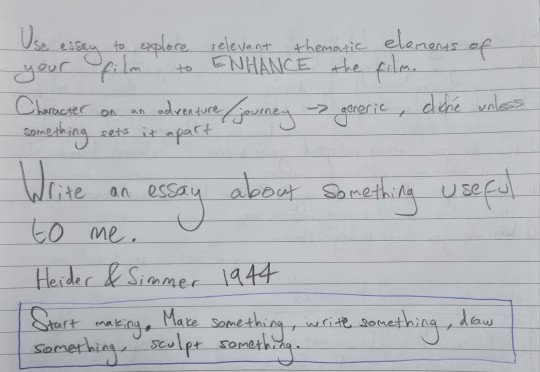 Use essay to explore relevant thematic elements of
your film to ENHANCE the film.
Character on an adventure/journey → generic, cliché unless
something sets it apart
Write an essay about something useful
to me.
Heider & Simmer 1944
Start making. Make something, write something, draw
something, sculpt something.